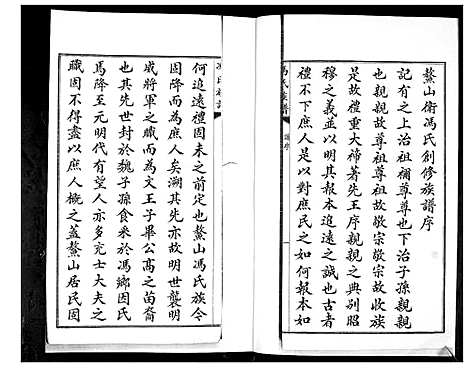 鰲山衛馮氏創修族譜序
記有之上治祖禰尊尊也下治子孫親親
也親親故尊祖尊祖故敬宗敬宗故收族
是故禮重大禘著先王序親親之典別昭
穆之義並以明其報本追遠之誠也古者
禮不下庶人是以對庶民之如何報本如
譜序
一
何追遠禮固未之前定也鰲山馮氏族今
固降而為庶人矣溯其先亦故明世襲明
威將軍之職而為文王子畢公高之苗裔
也其先世封於魏子孫食釆於馮鄉因氏
馬降至元明代有望人亦多充士大夫之
職固不得盡以庶人概之蓋鰲山居民固